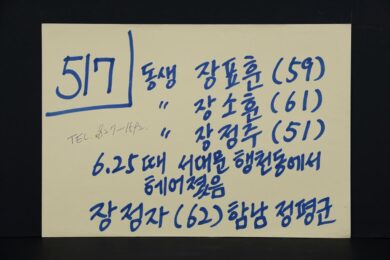 517
동생 장표훈 (59)
〃 장소훈 (61)
〃 장정주 (51)
TEL.
6.25때 서대문 행촌동에서
헤어졌음
장정자 (62) 함남 정평군